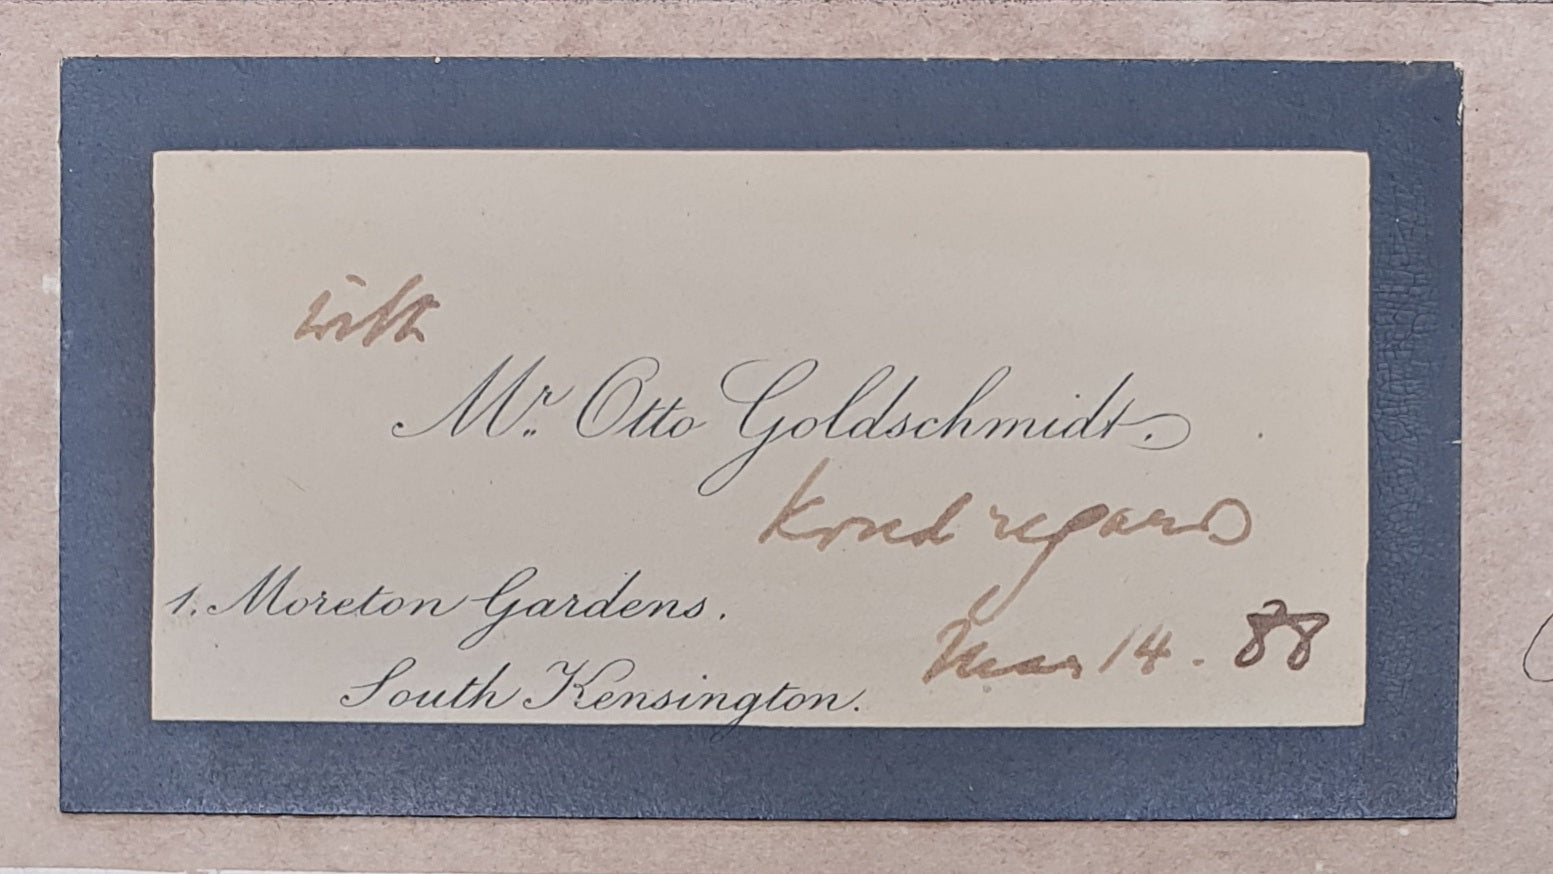 with
Mr. Otto Goldschmidt.
kind regards
1. Moreton Gardens.
Mar 14. 88
South Kensington.